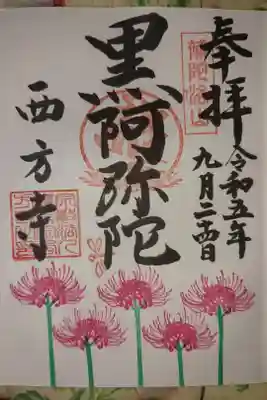 奉拝
令和五年
九月二十四日
黒阿弥陀
西方寺